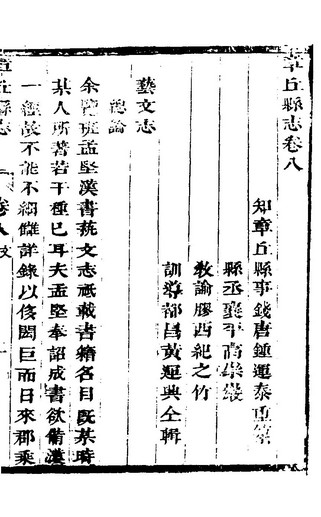 章丘縣志卷八
知章丘縣事錢唐鍾運泰重纂
縣丞襄平高崇嚴
教諭膠西紀之竹
訓導都昌黃運興仝輯
藝文志
總論
余覽班孟堅漢書藝文志祇載書籍名目既某時
某人所著若干種已耳夫孟堅奉詔成書欲備漢
一經故不能不細雠詳錄以俟閎巨而日來郡乘
章丘縣志
卷八